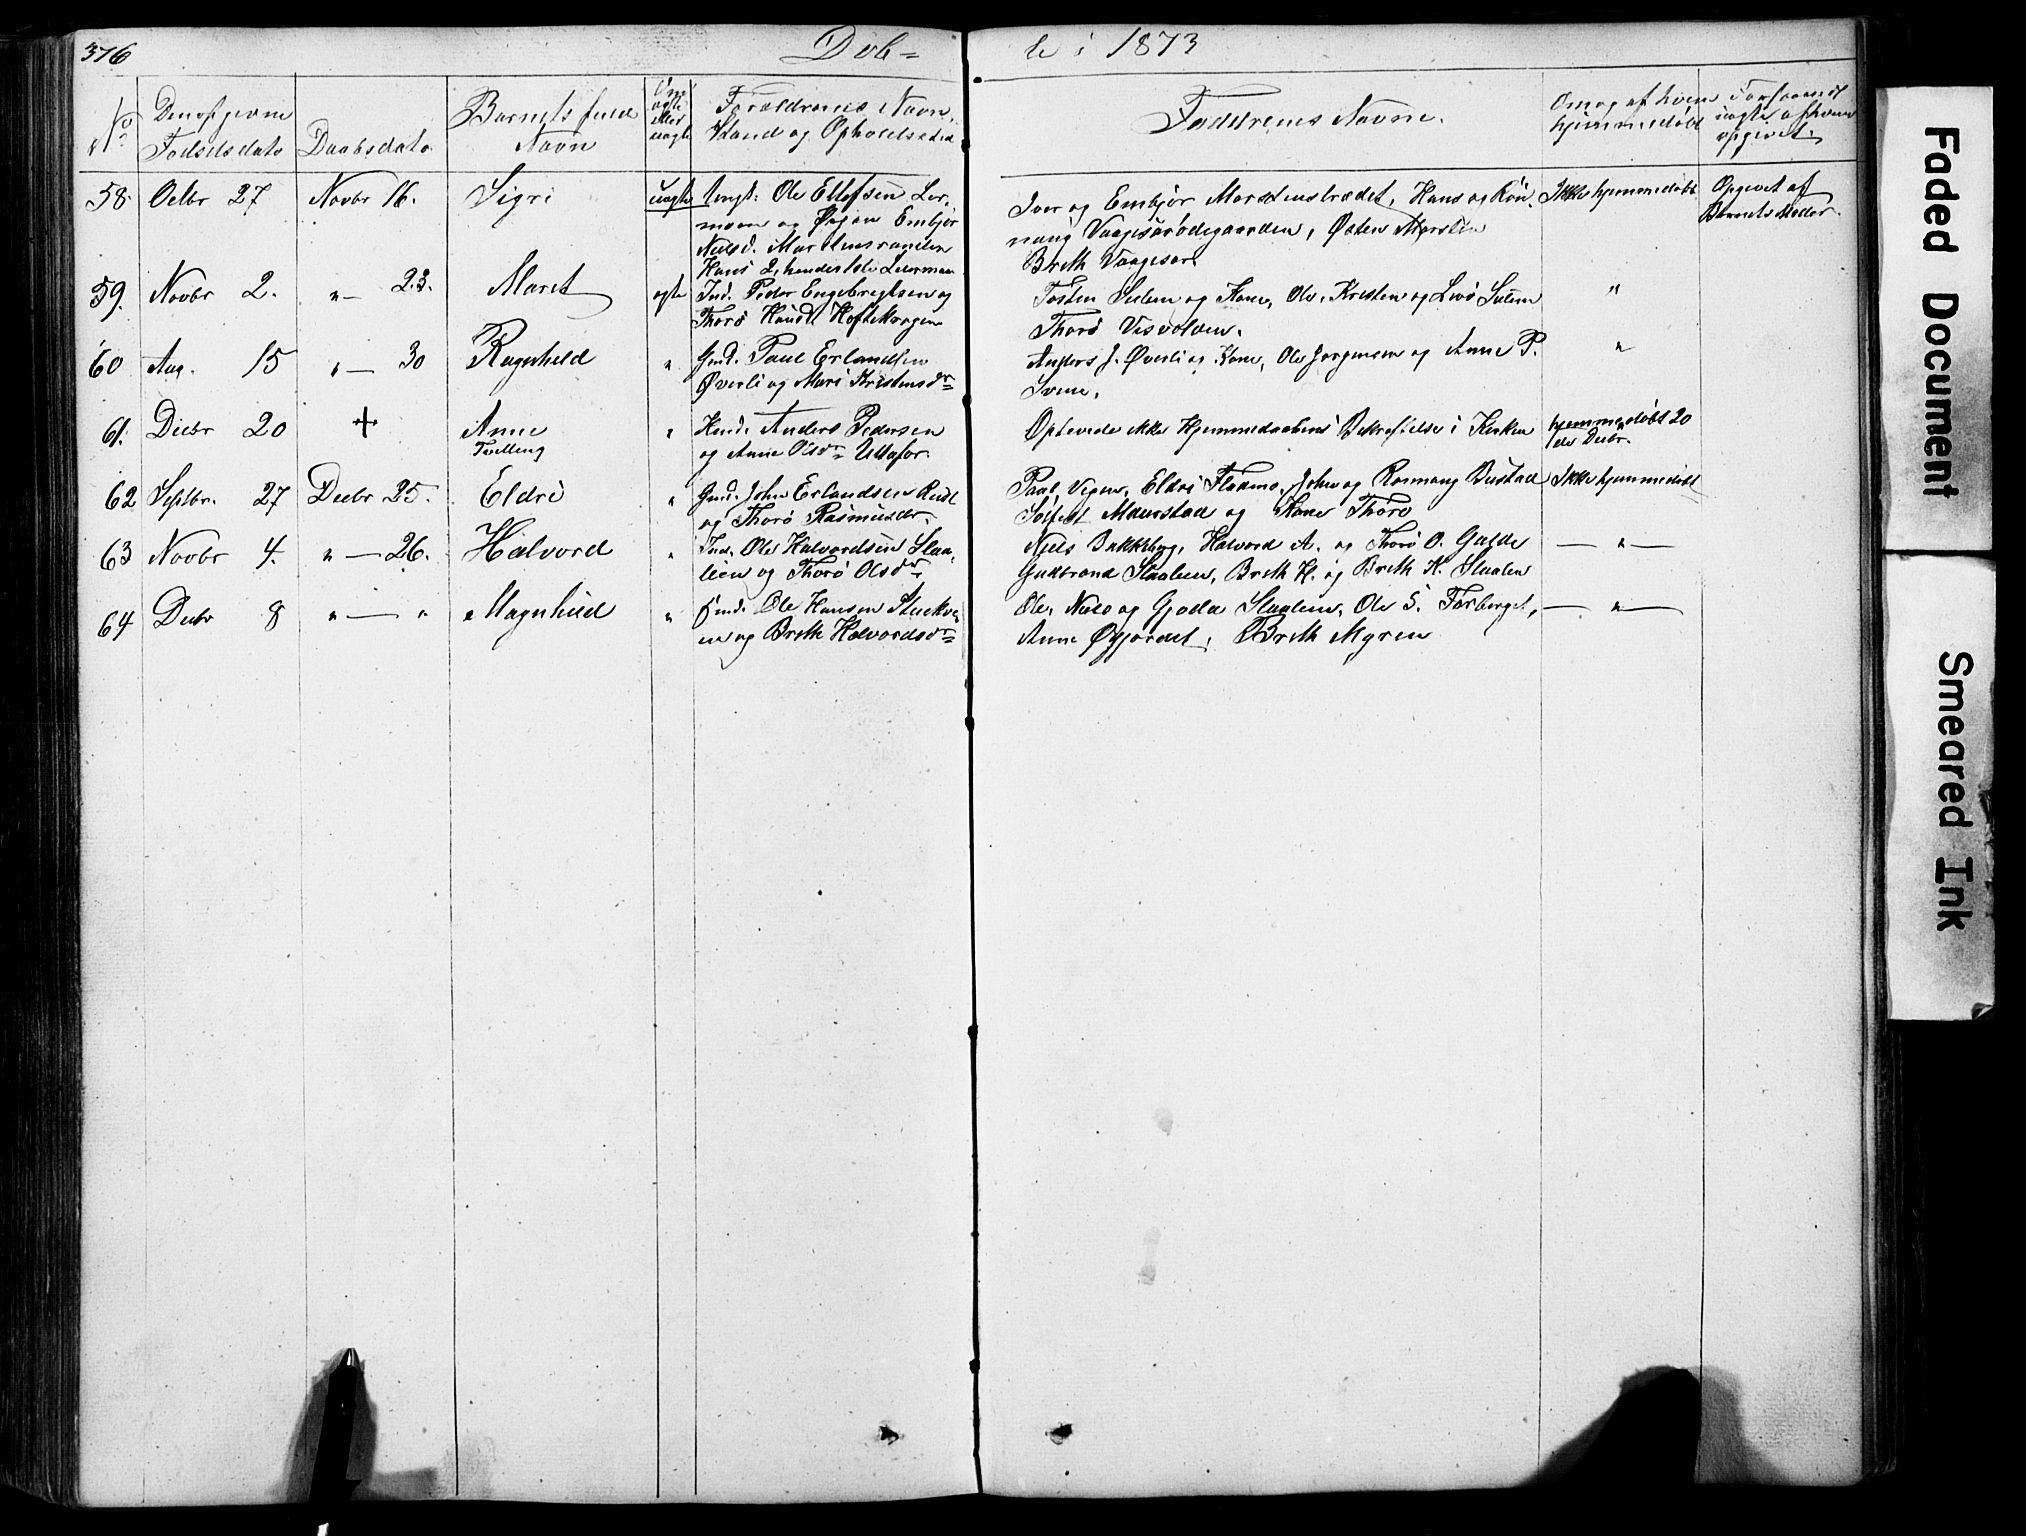 376
Døb-
te i 1873
No
Den opgivne
Fødselsdato
Daabsdato
Barnets fulde
Navn
Om
ægte
eller
uægte
Forældrenes Navn,
Stand og Opholdssted
Faddrenes Navne.
Om og af hvem
hjemmedøbt
Forsaavidt
uægte af hvem
opgivet.
58. Octbr 27 Novbr 16. Sigri uægte Ungk. Ole Ellefsen
moen og Pigen Embjør
Nielsd.
Hans 2, hendes 1ste
Iver og Embjør Marstenstrædet, Hans og Røn-
naug Vaagesarødegaarden, Østen Marsten
Brith Vaagesar
Ikke hjemmedøbt
Opgivet af
Barnets Moder.
59. Novbr 2. " — 23. Maret ægte Ind. Peder Engebregtsen og
Thorø
Tosten Sulem og Kone, Ole, Kristen og Livø Sulem
Thorø Visvolden.
"
60 Aug. 15 " — 30 Ragnhild " Gmd. Paul Erlandsen
Øverli og Mari Kristensdr
Anders J. Øverli og Kone, Ole Jørgensen og Anne P.
"
61. Decbr 20 + Anne " Huusm. Anders Pedersen
Tvilling
og Anne Olsdr
Oplevede ikke Hjemmedaabens Bekræftelse i Kirken
hjemmedøbt 20
de Decbr.
62 Septbr. 27 Decbr 25. Eldri " Gmd. John Erlandsen
og Thorø Rasmusdr.
Paal Vigen, Eldri Flaamo, John og Rønnaug Bustad
og Kone Thore
Ikke hjemmedøbt
63 Novbr 4. " — 26. Halvord " Ind. Ole Halvordsen Slaa-
lien og Thorø Olsdr.
Niels Bakkeberg, Halvord A. og Thorø O. Galde
Gudbrand Slaalien, Brith H. og Brith K. Slaalen
— " —
64 Decbr 8 " — " Magnhild " Gmd. Ole Hansen
en og Brith Halvordsdr
Ole, Niels og Gjøda Slaalien, Ole S. Forberget,
Anne Øygjordet, Brith Myren
— " —
Faded Document
Smeared Ink